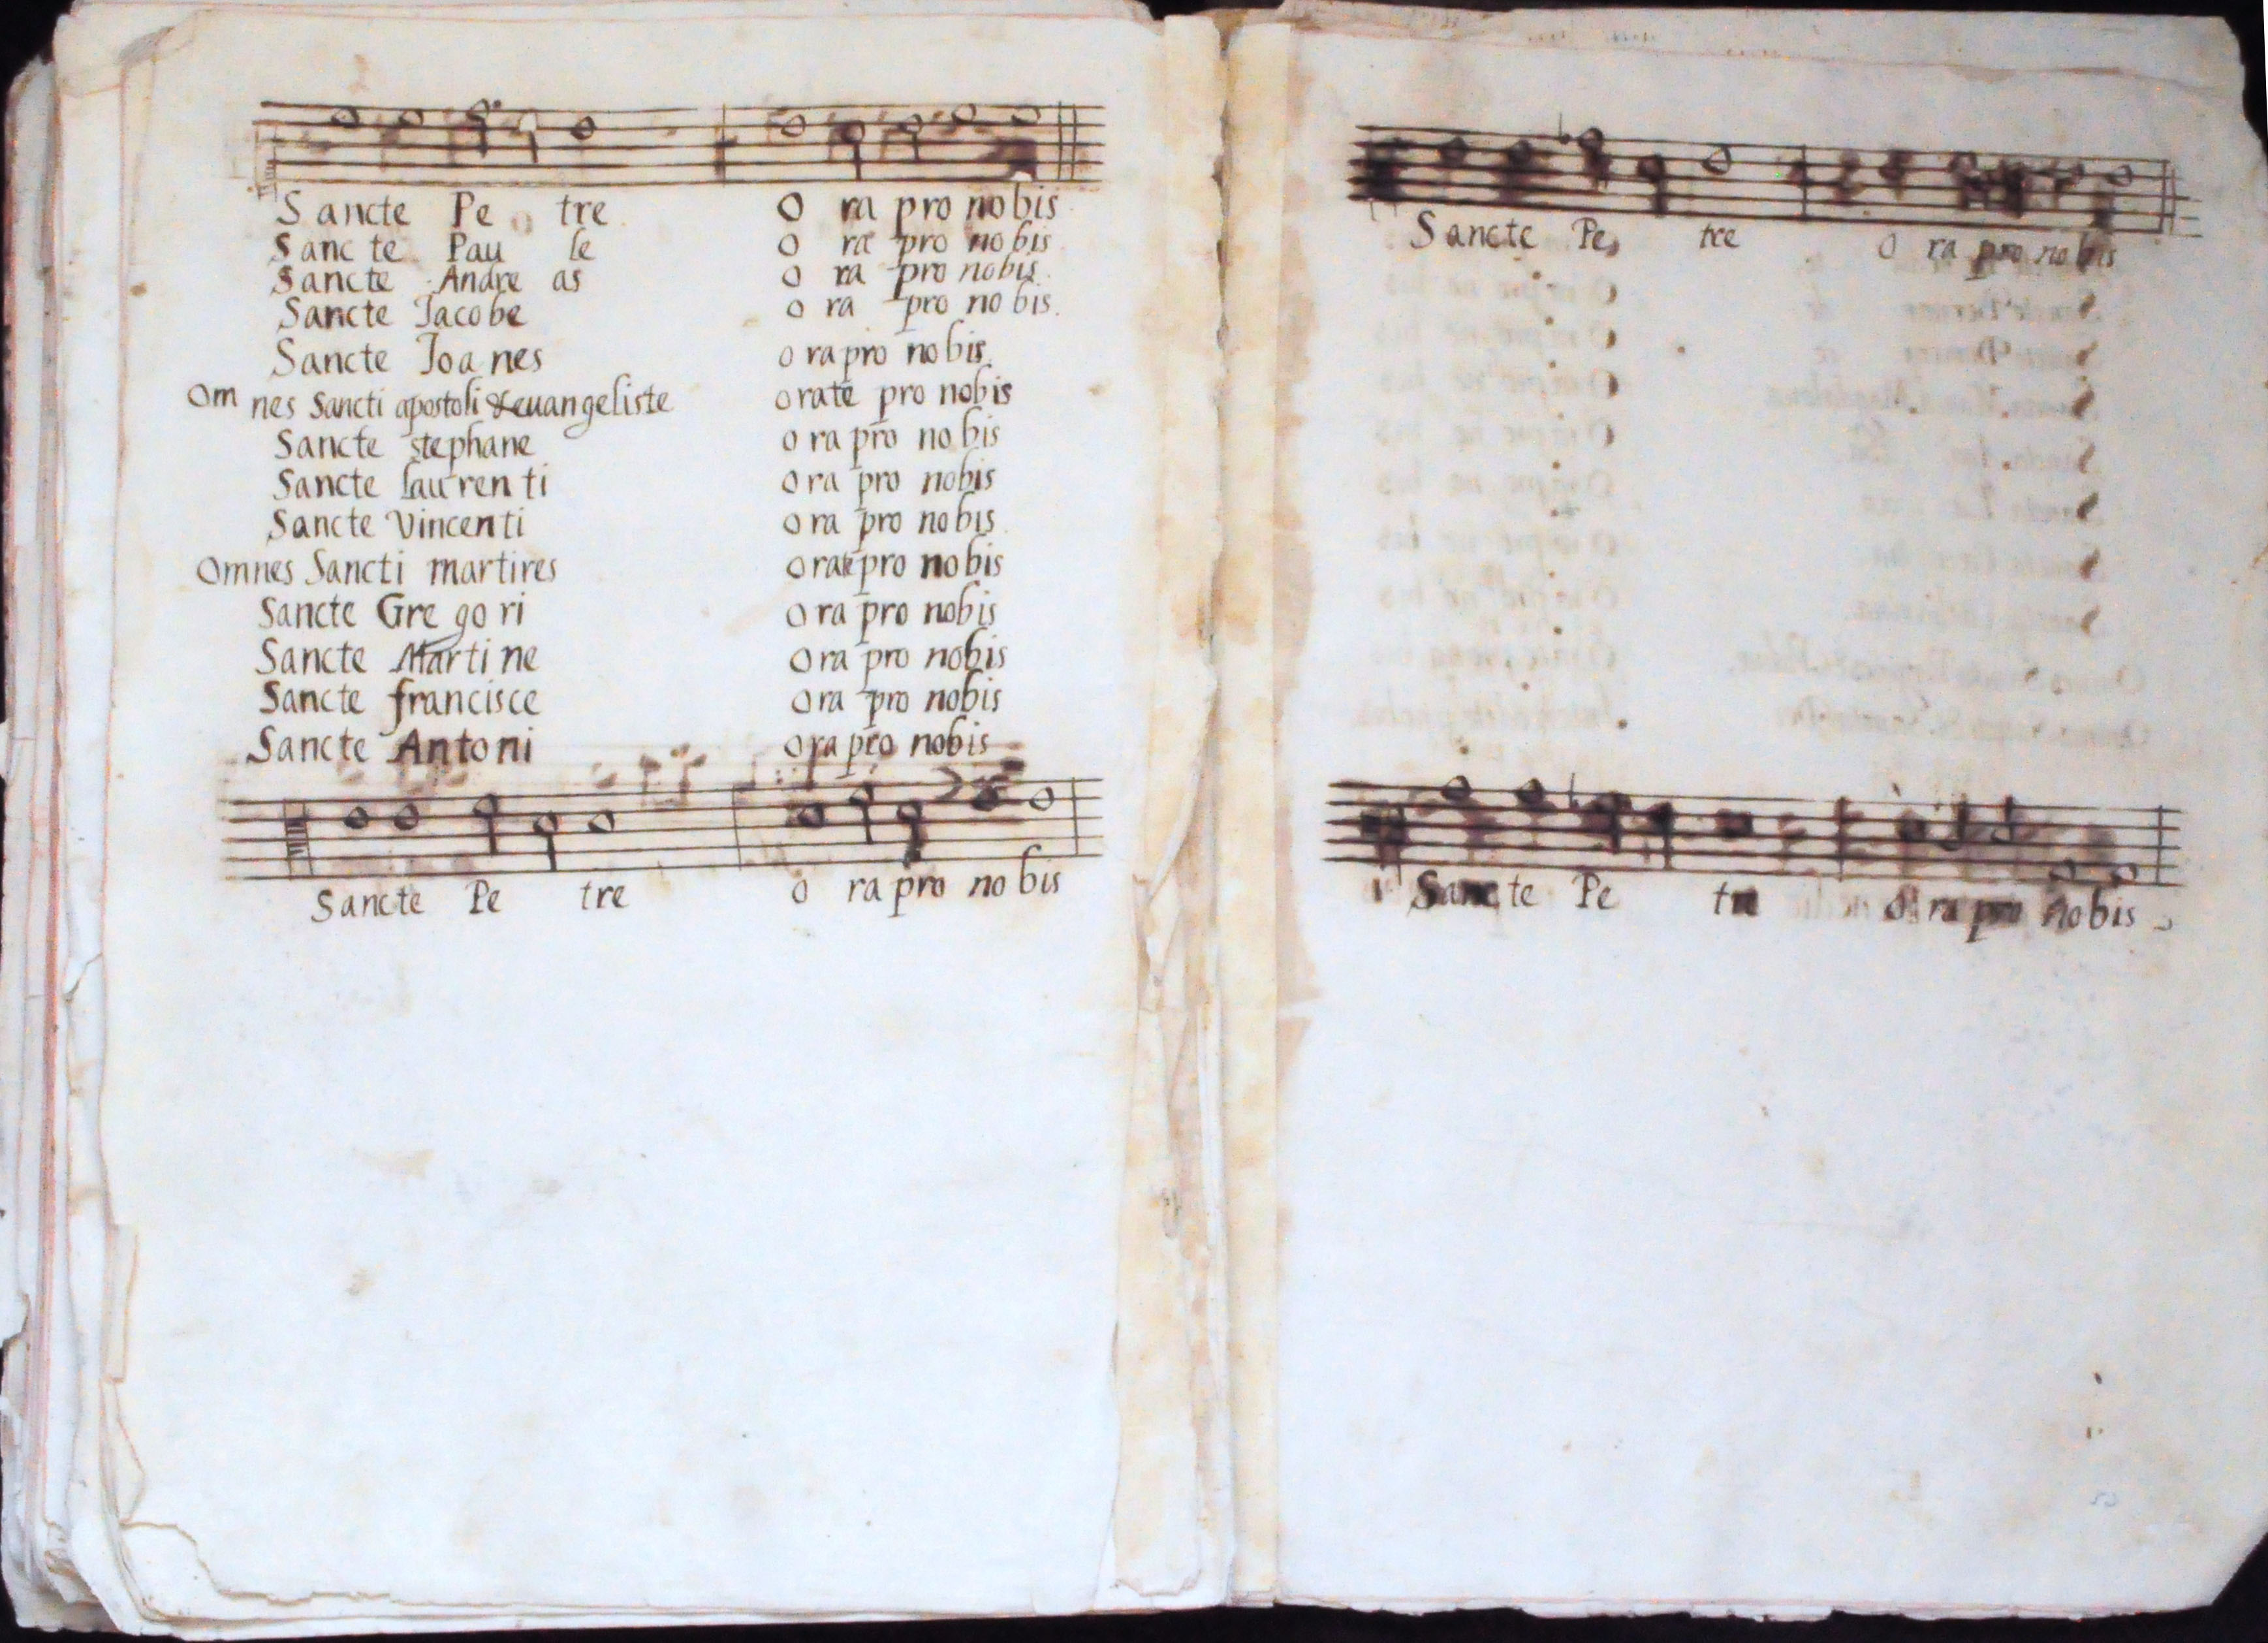 Sancte Pe tre O ra pro nobis
Sanc te Pau le O ra pro nobis
Sancte Andre as O ra pro nobis.
Sancte Jacobe O ra pro no bis.
Sancte Joa nes O ra pro no bis.
Om nes Sancti apostoli & euangeliste orate pro nobis
Sancte stephane O ra pro no bis
Sancte laurenti O ra pro nobis
Sancte Vincenti O ra pro nobis
Omnes Sancti martires Orate pro nobis
Sancte Gre go ri O ra pro nobis
Sancte Marti ne O ra pro nobis
Sancte francisce O ra pro nobis
Sancte Antoni O ra pro nobis
Sancte Pe tre O ra pro no bis
Sancte Pe tre O ra pro no bis
Sancte Pe tre O ra pro nobis